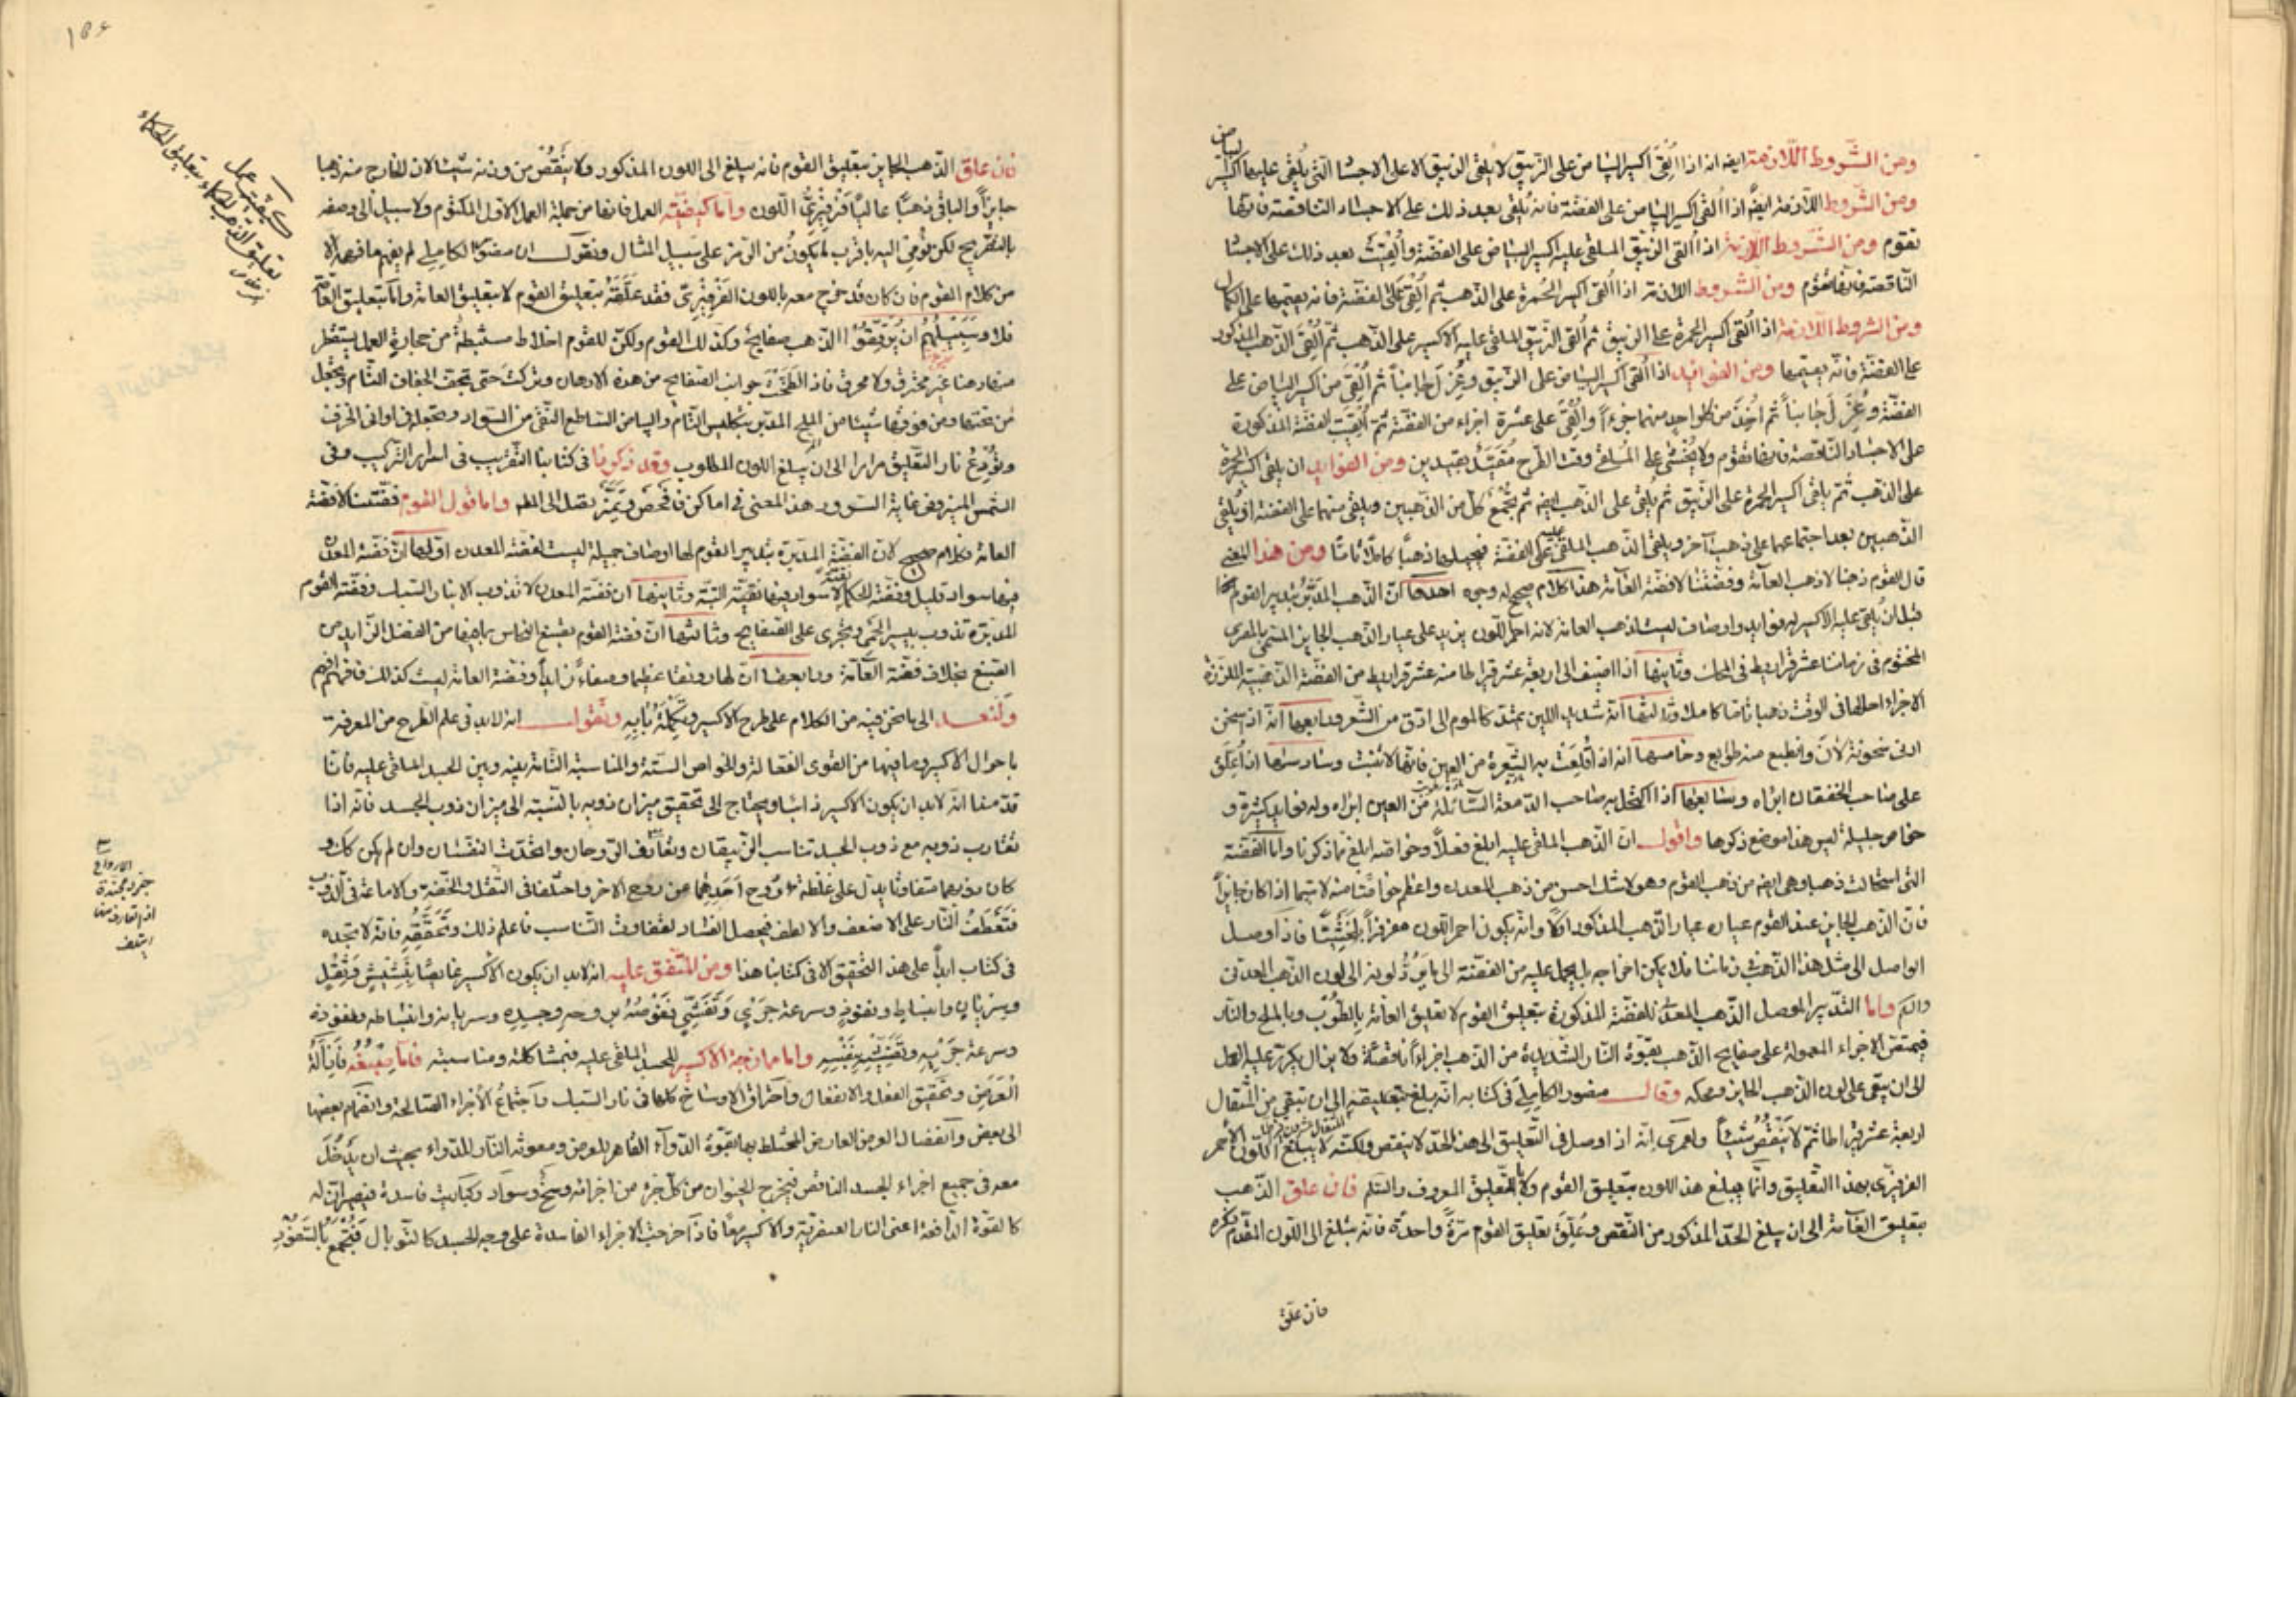 ومن الشروط اللازمة ايضا انه اذا القى اكسير البياض على الزيبق لا يلقى الزيبق الا على الاجساد التى يلقى عليها اكسير البياض
ومن الشروط اللازمة ايضا اذا القى اكسير البياض على الفضة فانه تلقى بعد ذلك على الاجساد الناقصة فانها
تقوم ومن الشروط اللازمة اذا القى الزيبق الملقى عليه اكسير البياض على الفضة والقيت بعد ذلك على الاجساد
الناقصة فانها تقوم ومن الشروط اللازمة اذا القى اكسير الحمرة على الذهب ثم القى على الفضة فانه يقيمها على الكمال
ومن الشروط اللازمة اذا القى اكسير الحمرة على الزيبق ثم القى الزيبق الملقى عليه الاكسير على الذهب ثم القى الذهب المذكور
على الفضة فانه يقيمها ومن الفوايد اذا القى اكسير البياض على الزيبق وعزل جانبا ثم القى من اكسير البياض على
الفضة وعزل جانبا ثم اخذ من كل واحد منهما جزءا والقى على عشرة اجزاء من الفضة ثم القيت الفضة المذكورة
على الاجساد الناقصة فانها تقوم ولا يخشى على الملقى وقت الطرح ومن الفوايد ان يلقى اكسير الحمرة
على الذهب ثم يلقى اكسير الحمرة على الزيبق ثم يلقى على الذهب ايضا ثم يجمع كل من الذهبين ويلقى منهما على الفضة او يلقى
الذهبين بعد اجتماعهما على ذهب آخر ويلقى الذهب الملقى عليه على الفضة فيحيلها ذهبا كاملا تاما ومن هذا المعنى
قال القوم ذهبنا لا ذهب العامة وفضتنا لا فضة العامة هذا كلام صحيح له وجوه احدها ان الذهب المدبر بتدبير القوم
قبل ان يلقى عليه الاكسير له فوايد واوصاف ليست لذهب العامة لانه احمر اللون يزيد على عيار الذهب الجايز المسمى بالمصرى
المختوم فى زماننا عشر قراريط فى المحك وثانيها اذا اضيف الى اربعة عشر قيراطا منه عشر قراريط من الفضة الذهبية اللون
الاجزاء احالها فى الوقت ذهبا خالصا كاملا وثالثها انه شديد اللين يمتد كالموم الى ادق من الشعر ورابعها انه اذا سخن
ادنى سخونة لان وانطبع منه طوابع وخامسها انه اذا اقلعت به الشعرة من العين فانها لا تنبت وسادسها اذا علق
على صاحب الخفقان ابراه وسابعها اذا اكتحل به صاحب الدمعة السائلة من العين ابراه وله فوايد كثيرة و
خواص جليلة ليس هذا موضع ذكرها واقول ان الذهب الملقى عليه ابلغ فعلا وخواصه ابلغ مما ذكرنا واما الفضة
التى استحالت ذهبا وهى ايضا من ذهب القوم وهو لا شك احسن من ذهب المعدن واعظم خواصا منه لا سيما اذا كان جايزا
فان الذهب الجايز عند القوم عياره عيار الذهب المذكور اولا وانه يكون احمر اللون فاذا وصل
الواصل الى مثل هذا الذهب فى زماننا فلا يمكن اخراجه بل يحمل عليه من الفضة الى ما يرد لونه الى لون الذهب المعدنى
واما التدبير الموصل الذهب المعدنى للفضة المذكورة بتعليق القوم لا تعليق العامة بالطوب وبالملح والنار
فيمتص الاجزاء المعمولة على صفايح الذهب بقوة النار الشديدة من الذهب اجزاء ناقصة ولا يزال يكرر عليه العمل
الى ان يبقى على لون الذهب الجايز ومحكه وقال منصور الكاملى فى كتابه انه يبلغ بتعليقه الى ان تبقى من المثقال
اربعة عشر قيراطا ثم لا ينقص شيئا ولعمرى انه اذا وصل فى التعليق الى هذا الحد لا ينقص ولكنه لا يبلغ اللون الاحمر
الفرفيرى بهذا التعليق وانما يبلغ هذا اللون بتعليق القوم ولا بالتعليق المعروف والسلم فان علق الذهب
بتعليق العامة الى ان يبلغ الحد المذكور من النقص وعلق تعليق القوم مرة واحدة فانه يبلغ الى اللون المقدم ذكره
فان علق
فان علق الذهب الجايز بتعليق القوم فانه يبلغ الى اللون المذكور ولا ينقص من وزنه شيئا لان الخارج منه ذهبا
جايزا والباقى ذهبا عاليا فرفيرى اللون واما كيفية العمل فانها من جملة العمل الاول المكتوم ولا سبيل الى وصفه
بالتصريح لكن نومى اليه باقرب ما يكون من الرمز على سبيل المثال ونقول ان منصور الكاملى لم يفهم ما فهمه الا
من كلام القوم فان كان قد خرج معه باللون الفرفيرى فقد علقه بتعليق القوم لا بتعليق العامة واما تعليق العامة
فلا وسبيلهم ان يرققوا الذهب صفايح وكذلك القوم ولكن للقوم اخلاط مستنبطة من حجارة العمل يستقطر
منها دهنا غير محترق ولا محرق فاذا لطخت جوانب الصفايح من هذه الادهان وتركت حتى تجف الجفاف التام ويجعل
من تحتها ومن فوقها شيئا من الملح المدبر بتكليس التام والبياض الساطع النقى من السواد ويجعل فى اوانى الخزف
وتودع نار التعليق مرارا الى ان يبلغ اللون المطلوب وقد ذكرنا فى كتابنا التقريب فى اسرار التركيب وفى
الشمس المنير وفى غاية السرور هذا المعنى فى اماكن فافحص وتميز تصل الى العلم واما قول القوم فضتنا لا فضة
العامة فكلام صحيح لان الفضة المدبرة بتدبير القوم لها اوصاف جميلة ليست لفضة المعدن اولها ان فضة المعدن
فيها سواد قليل وفضة الحكماء لا سواد فيها نقية البتة وثانيها ان فضة المعدن لا تذوب الا بنار السبك وفضة القوم
المدبرة تذوب بيسير الحمى وتجرى على الصفايح وثالثها ان فضة القوم تصبغ النحاس بما فيها من الفضل الزايد من
الصبغ بخلاف فضة العامة ورابعها ان لها رونقا عظيما وصفاء زايدا وفضة العامة ليست كذلك فافهم
ولنعد الى ما نحن فيه من الكلام على طرح الاكسير وتكملة بابه ونقول انه لابد فى علم الطرح من المعرفة
باحوال الاكسير وما فيها من القوى الفعالة والخواص الستة والمناسبة الثابتة بينه وبين الجسد الملقى عليه فاننا
قدمنا انه لابد ان يكون الاكسير ذائبا ويحتاج الى تحقيق ميزان ذوبه بالنسبة الى ميزان ذوب الجسد فانه اذا
تقارب ذوبه مع ذوب الجسد تناسب الزيبقان وتعارف الروحان واتحدت النفسان وان لم يكن كذلك و
كان ذوبهما متفاوتا يدل على غلظة روح احدهما عن روح الآخر واختلفا فى الثقل والخفة والاماعة فى الذوب
فتعطف النار على الاضعف والالطف فيحصل الفساد لتفاوت التناسب فاعلم ذلك وتحققه فانه لا تجده
فى كتاب ابدا على هذا التحقيق الا فى كتابنا هذا ومن المتفق عليه انه لابد ان يكون الاكسير غايصا
وسريان وانبساط ونفوذ وسرعة جرى وتفشى فغوصه بروحه وجسده وسريانه وانبساطه ونفوذه
وسرعة جريه وتفشيه بنفسه واما ممازجة الاكسير للجسد الملقى عليه فبمشاكلة ومناسبة فاما صبغه فبازالة
العرض وتحقيق الفعل والانفعال واحتراق الاوساخ كلها فى نار السبك واجتماع الاجزاء الصالحة وانضمام بعضها
الى بعض وانفصال العرض العارض المختلط بها بقوة الدواء القاهر للعرض ومعونة النار للدواء بحيث ان يدخل
معه فى جميع اجزاء الجسد الناقص فيخرج الحيوان من كل جزء من اجزائه وسخ وسواد وكباريت فاسدة
كالقوة الدافعة اعنى النار العنصرية والاكسير معا فاذا خرجت الاجزاء الفاسدة على وجه الجسد كالتوبال فتجمع
كيفية عمل
تعليق الذهب
الارواح
جنود مجندة
اذا تعارف منها
ايتلف